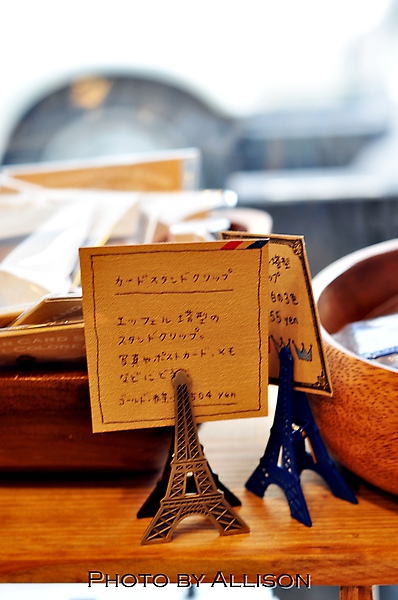 カードスタンドクリップ
エッフェル塔型の
スタンドクリップ。
写真やポストカード、メモ
などにど
ゴールド・ 504 yen
塔型
ップ
55 yen
CARD
PHOTO BY ALLISON